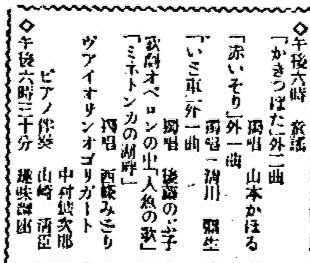 ◇午後六時 童謠
「かきつばた」外二曲
獨唱 山本かほる
「赤いそり」外一曲
獨唱 清川 彌生
「いミ車」外一曲
獨唱 後藤のぶ子
歌劇オベロンの中「人魚の歌」
「ミネトンカの湖畔」
獨唱 西條みどり
ヴアイオリンオブリガート
中村 次郎
ピアノ伴奏 山崎 清臣
◇午後六時三十分 趣味講座